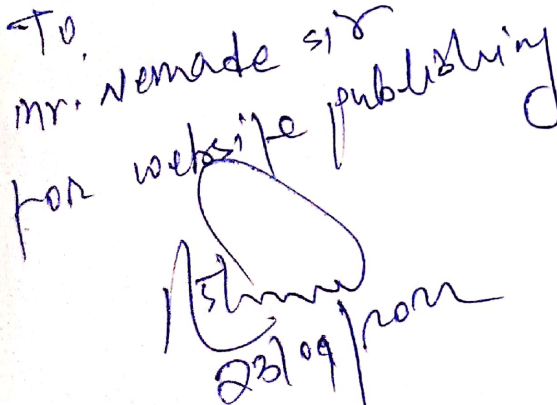 To,
mr. Nemade sir
for website publishing
23/09/2022